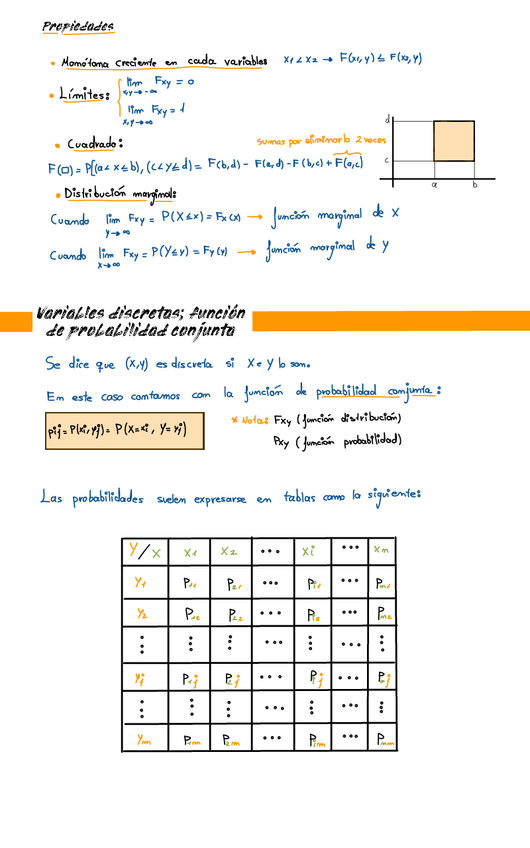 Propiedades
• Monótona creciente en cada variables x1 < x2 → F(x1, y) ≤ F(x2, y)
• Límites: { lim Fxy = 0
x,y→-∞
lim Fxy = 1
x,y→∞
• Cuadrado:
Sumas por eliminarlo 2 veces
F(□) = P[(a < x ≤ b), (c < y ≤ d) = F(b,d) - F(a,d) - F(b,c) + F(a,c)
d
c
a b
• Distribución marginal:
Cuando lim Fxy = P(X ≤ x) = Fx(x) → función marginal de X
y→∞
Cuando lim Fxy = P(Y ≤ y) = Fy(y) → función marginal de y
x→∞
Variables discretas; función
de probabilidad conjunta
Se dice que (X,y) es discreta si X e Y lo son.
En este caso contamos con la función de probabilidad conjunta:
pij = P(xi, yj) = P(X=xi, Y=yj)
* Nota: Fxy (función distribución)
Pxy (función probabilidad)
Las probabilidades suelen expresarse en tablas como la siguiente:
Y/X x1 x2 ... xi ... xn
Y1 P11 P21 ... Pi1 ... Pn1
Y2 P12 P22 ... Pi2 ... Pn2
⋮ ⋮ ⋮ ... ⋮ ... ⋮
Yj P1j P2j ... Pij ... Pnj
⋮ ⋮ ⋮ ... ⋮ ... ⋮
Ym P1m P2m ... Pim ... Pnm